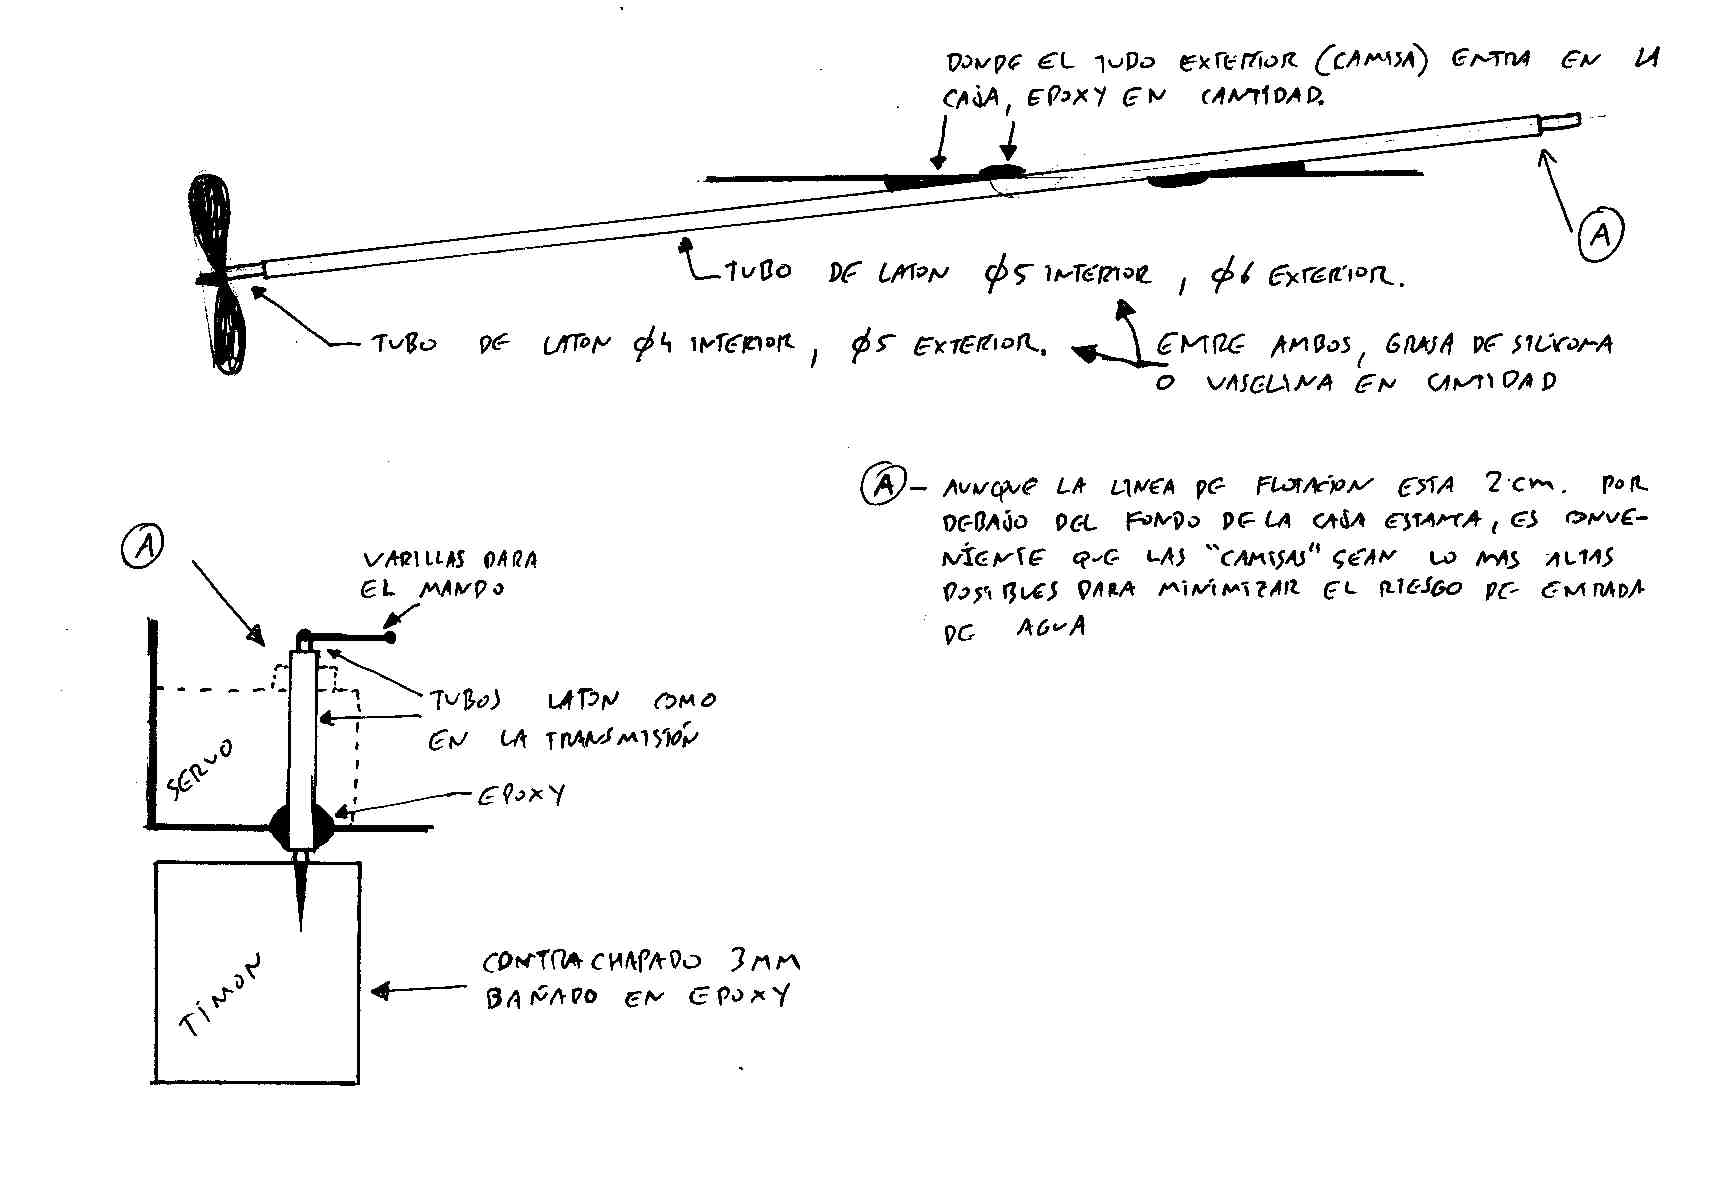 DONDE EL TUBO EXTERIOR (CAMISA) ENTRA EN LA
CAJA, EPOXY EN CANTIDAD.
A
TUBO DE LATON φ5 INTERIOR, φ6 EXTERIOR.
TUBO DE LATON φ4 INTERIOR, φ5 EXTERIOR.
ENTRE AMBOS, GRASA DE SILICONA
O VASELINA EN CANTIDAD
A - AUNQUE LA LINEA DE FLOTACION ESTA 2 cm. POR
DEBAJO DEL FONDO DE LA CAJA ESTANCA, ES CONVE-
NIENTE QUE LAS "CAMISAS" SEAN LO MAS ALTAS
POSIBLES PARA MINIMIZAR EL RIESGO DE ENTRADA
DE AGUA
A
VARILLAS PARA
EL MANDO
TUBOS LATON COMO
EN LA TRANSMISIÓN
SERVO
EPOXY
TIMON
CONTRACHAPADO 3MM
BAÑADO EN EPOXY